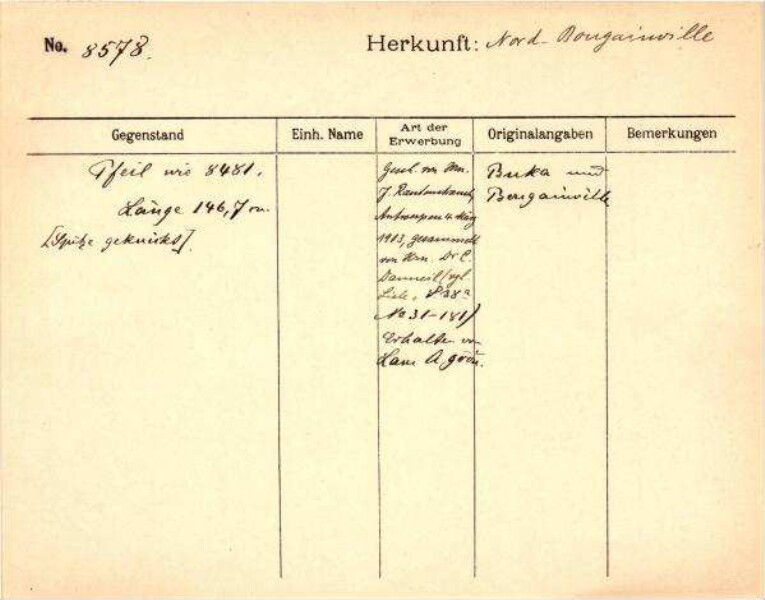 No. 8578.
Herkunft: Nord-Bougainville
Gegenstand
Einh. Name
Art der Erwerbung
Originalangaben
Bemerkungen
Pfeil wie 8481.
Länge 146,7 cm.
[Spitze geknickt].
Gesch. von Hrn.
J.
Antwerpen 4. März
1913, gesammelt
von Hrn. Dr. C.
Danneil (vgl.
Liste, 838a
No 31-181)
Erhalten von
Buka und
Bougainville